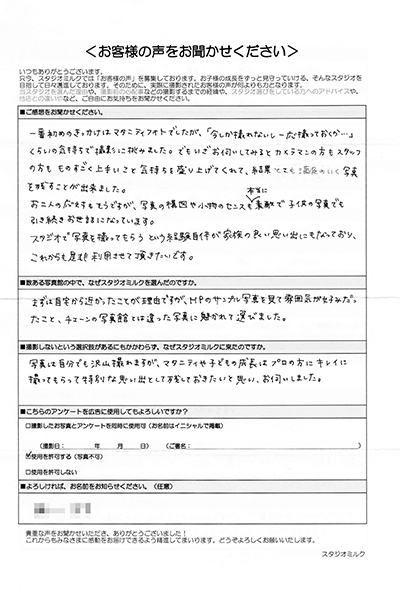 ＜お客様の声をお聞かせください＞
いつもありがとうございます。
只今、スタジオミルクでは「お客様の声」を募集しております。お子様の成長をずっと見守っていける、そんなスタジオを
目指して日々精進しております。そのために、実際に撮影されたお客様の声が何よりも力となります。
当スタジオを選んだ理由や、撮影前の心配事などの撮影するまでの経緯や、スタジオ選びをしている方へのアドバイスや、
他店との違いなど、ご自由にお気持ちをお聞かせください。
■ご感想をお聞かせください。
一番初めのきっかけはマタニティフォトでしたが、「今しか撮れないし一応撮っておくか…」
くらいの気持ちで撮影に挑みました。でもいざお伺いしてみるとカメラマンの方もスタッフ
の方も ものすごく上手いこと 気持ちを盛り上げてくれて、結果 とても満足のいく写真
を残すことが出来ました。
お二人の対応もそうですが、写真の構図や小物のセンスも本当に素敵で 子供の写真でも
引き続きお世話になっています。
スタジオで写真を撮ってもらう という経験自体が家族の良い思い出にもなっており、
これからも是非 利用させて頂きたいです。
■数ある写真館の中で、なぜスタジオミルクを選んだのですか。
まずは自宅から近かったことが理由ですが、HPのサンプル写真を見て雰囲気が好みだっ
たこと、チェーンの写真館とは違った写真に魅かれて選びました。
■撮影しないという選択肢があるにもかかわらず、なぜスタジオミルクに来たのですか。
写真は自分でも沢山撮れますが、マタニティや子どもの成長はプロの方にキレイに
撮ってもらって特別な思い出として残しておきたいと思い、お伺いしました。
■こちらのアンケートを広告に使用してもよろしいですか？
□撮影したお写真とアンケートを同時に使用可（お名前はイニシャルで掲載）
（撮影日： 年 月 日） （ご署名： ）
☑使用を許可する（写真不可）
□使用を許可しない
■よろしければ、お名前をお知らせください。（任意）
貴重な声をお聞かせいただき、ありがとうございました！
これからもみなさまに感動をお届けできるよう精進してまいります。どうぞよろしくお願いいたします。
スタジオミルク